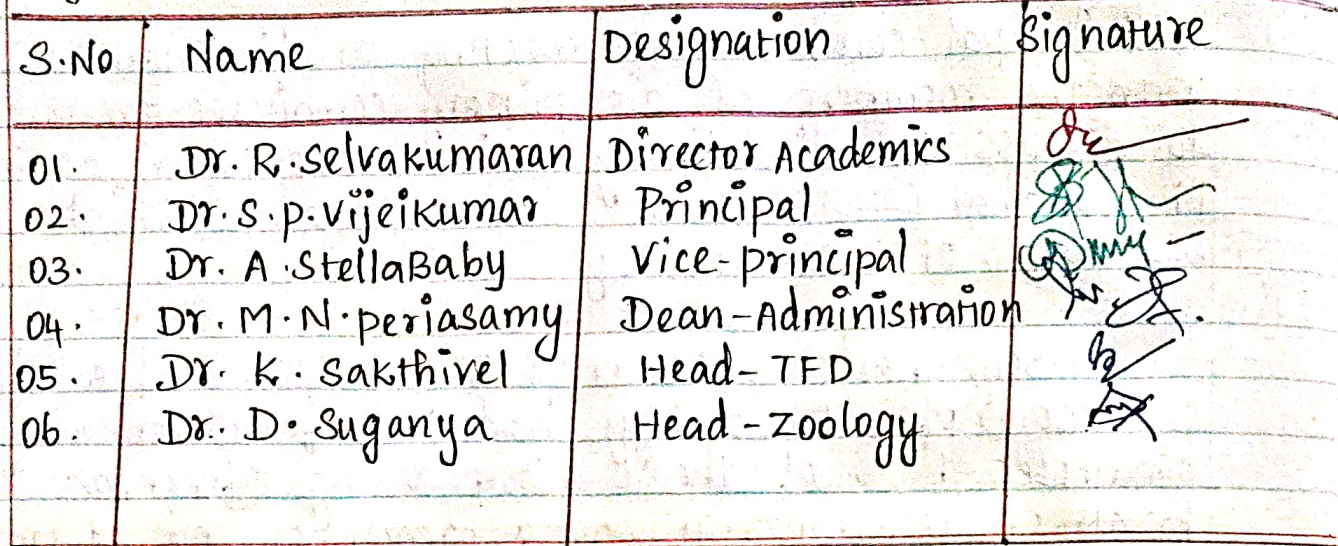 S.No Name Designation Signature
01. Dr. R. Selvakumaran Director Academics
02. Dr. S. P. Vijeikumar Principal
03. Dr. A. StellaBaby Vice-principal
04. Dr. M. N. periasamy Dean-Administration
05. Dr. K. Sakthivel Head-TFD
06. Dr. D. Suganya Head-Zoology